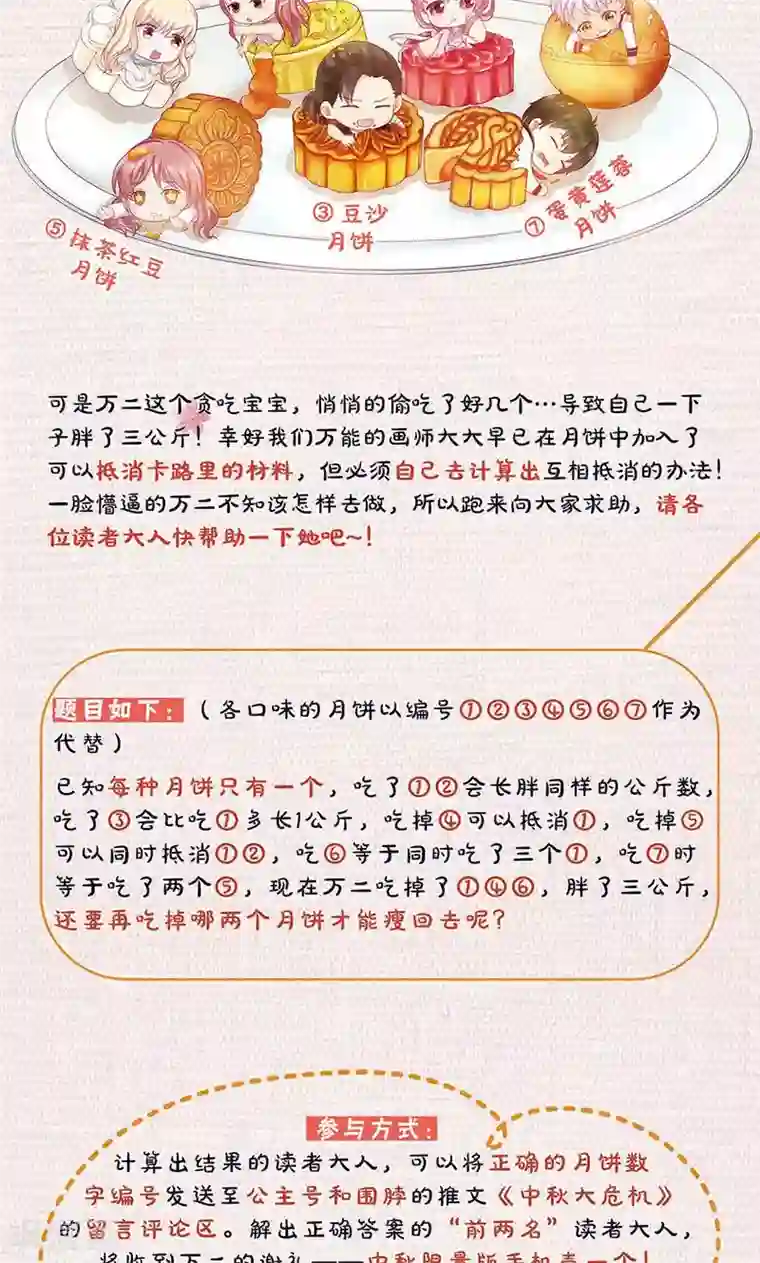 ③豆沙
月饼
⑦蛋黄莲蓉
月饼
⑤抹茶红豆
月饼
可是万二这个贪吃宝宝，悄悄的偷吃了好几个…导致自己一下
子胖了三公斤！幸好我们万能的画师大大早已在月饼中加入了
可以抵消卡路里的材料，但必须自己去计算出互相抵消的办法！
一脸懵逼的万二不知该怎样去做，所以跑来向大家求助，请各
位读者大人快帮助一下她吧~！
题目如下：（各口味的月饼以编号①②③④⑤⑥⑦作为
代替）
已知每种月饼只有一个，吃了①②会长胖同样的公斤数，
吃了③会比吃①多长1公斤，吃掉④可以抵消①，吃掉⑤
可以同时抵消①②，吃⑥等于同时吃了三个①，吃⑦时
等于吃了两个⑤，现在万二吃掉了①④⑥，胖了三公斤，
还要再吃掉哪两个月饼才能瘦回去呢？
参与方式：
计算出结果的读者大人，可以将正确的月饼数
字编号发送至公主号和围脖的推文《中秋大危机》
的留言评论区。解出正确答案的“前两名”读者大人，
将收到万二的谢礼——中秋限量版手机壳一个！